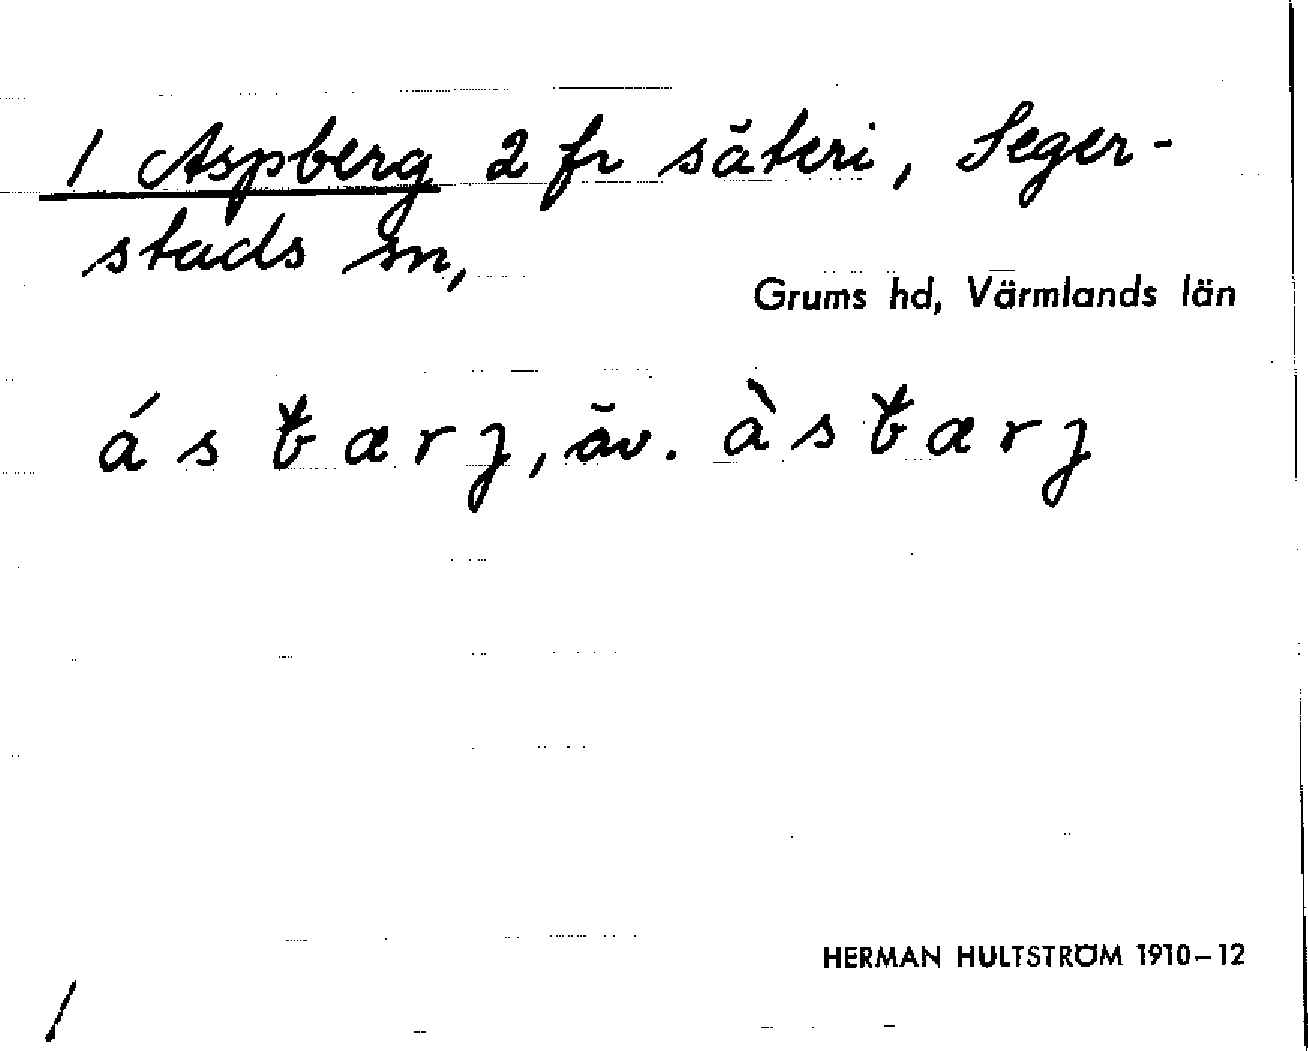 1 Aspberg 2 fr säteri, Seger-
stads sn,
Grums hd, Värmlands län
á s ƀ æ r j, äv. à s ƀ æ r j
HERMAN HULTSTRÖM 1910–12
/